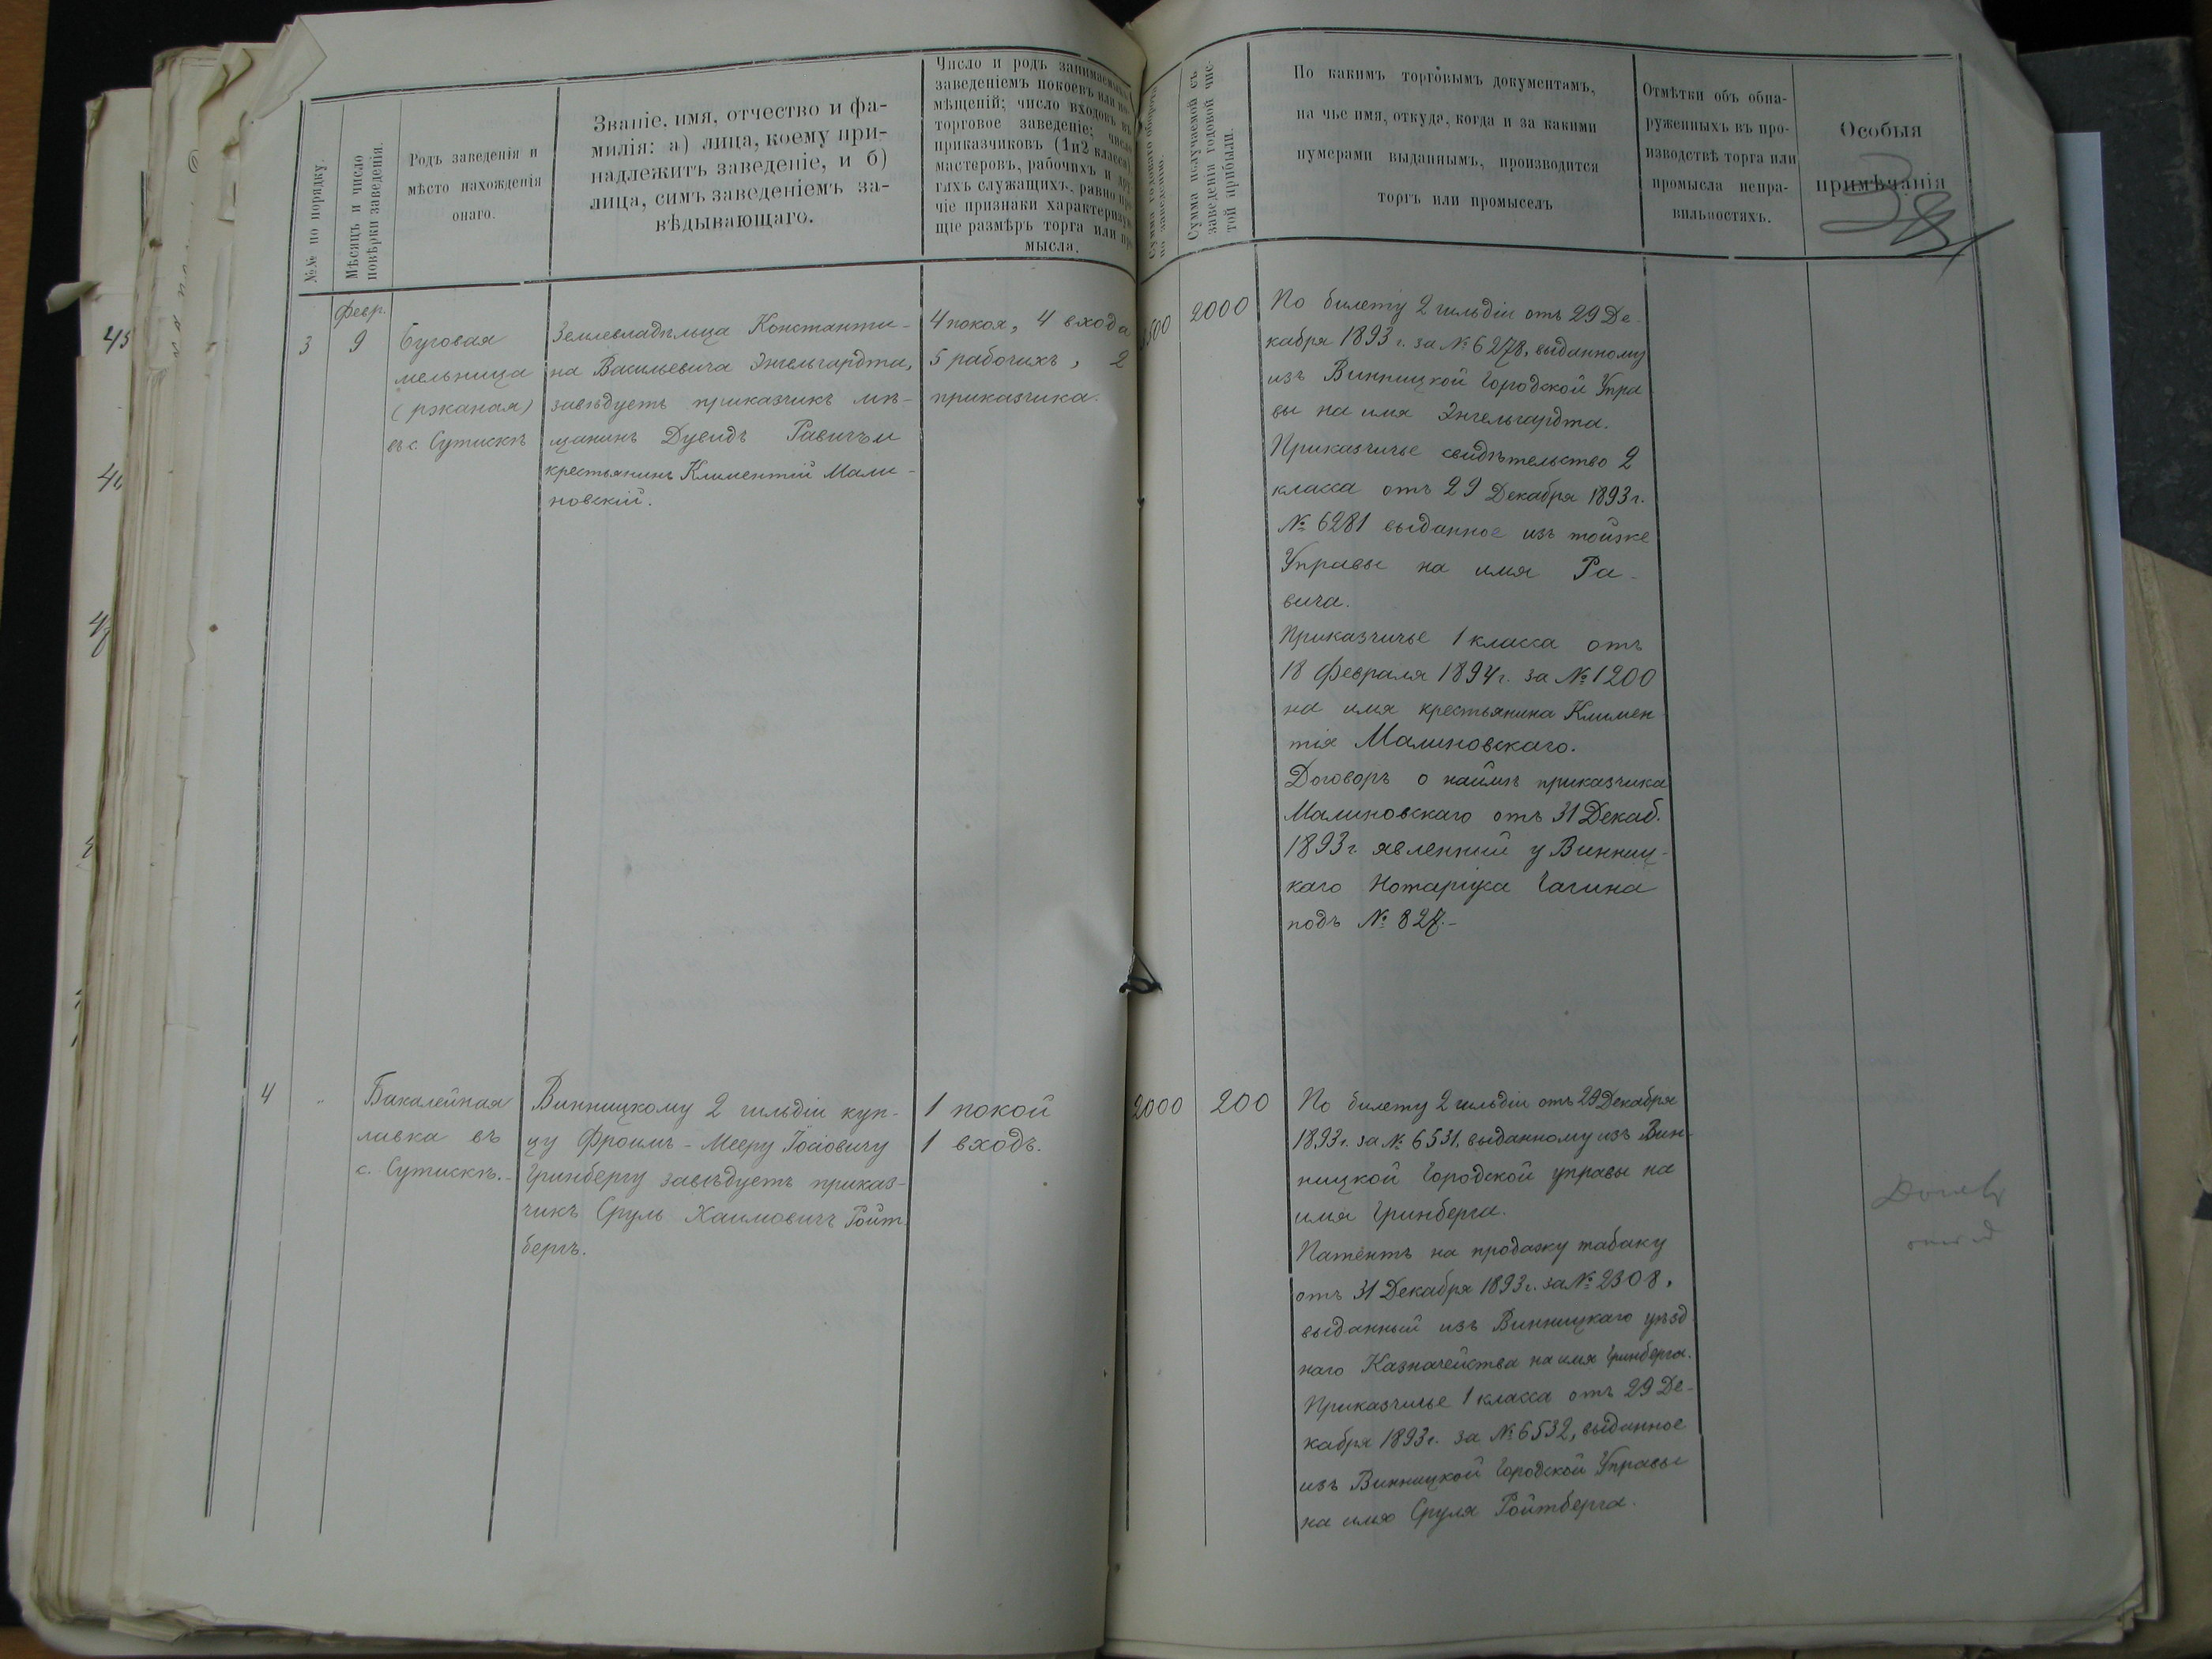 №№ по порядку.
Мѣсяцъ и число
повѣрки заведенія.
Родъ заведенія и
мѣсто нахожденія
онаго.
Званіе, имя, отчество и фа-
милія: а) лица, коему при-
надлежитъ заведеніе, и б)
лица, симъ заведеніемъ за-
вѣдывающаго.
Число и родъ занимаемыхъ
заведеніемъ покоевъ или по-
мѣщеній; число входовъ въ
торговое заведеніе; число
приказчиковъ (1 и 2 класса)
мастеровъ, рабочихъ и дру-
гихъ служащихъ, равно про-
чіе признаки характеризую-
щіе размѣръ торга или про-
мысла.
Сумма годоваго оборота
по заведенію.
Сумма получаемой съ
заведенія годовой чис-
той прибыли.
По какимъ торговымъ документамъ,
на чье имя, откуда, когда и за какими
нумерами выданнымъ, производится
торгъ или промыселъ
Отмѣтки объ обна-
руженныхъ въ про-
изводствѣ торга или
промысла непра-
вильностяхъ.
Особыя
примѣчанія
3
Февр.
9
мельница
въ с. Сутискѣ
Землевладѣльца Константи-
на Васильевича Энгельгардта,
завѣдуетъ приказчикъ мѣ-
щанинъ Дувидъ Равичъ и
крестьянинъ Климентій Мали-
новскій.
4 покоя, 4 входа
5 рабочихъ, 2
приказчика.
2000
По билету 2 гильдіи отъ 29 Де-
кабря 1893 г. за № 6278, выданному
изъ Винницкой Городской Упра
вы на имя Энгельгардта.
Приказчичье свидѣтельство 2
класса отъ 29 Декабря 1893 г.
№ 6281 выданное изъ тойже
Управы на имя Ра-
вича.
Приказчичье 1 класса отъ
18 Февраля 1894 г. за № 1200
на имя крестьянина Климен
тія Малиновскаго.
Договоръ о наймѣ приказчика
Малиновскаго отъ 31 Декаб.
1893 г. явленный у Винниц-
каго Нотаріуса
подъ № 827.-
4
"
Бакалейная
лавка въ
с. Сутискѣ.-
Винницкому 2 гильдіи куп-
цу Фроимъ-Мееру Іосіовичу
Гринбергу завѣдуетъ приказ-
чикъ Сруль Хаимовичъ Ройт-
бергъ.
1 покой
1 входъ.
2000
200
По билету 2 гильдіи отъ 29 Декабря
1893 г. за № 6531, выданному изъ Вин-
ницкой Городской управы на
имя Гринберга.
Патентъ на продажу табаку
отъ 31 Декабря 1893 г. за № 2308,
выданный изъ Винницкаго уѣзд
наго Казначейства на имя Гринберга.
Приказчичье 1 класса отъ 29 Де-
кабря 1893 г. за № 6532, выданное
изъ Винницкой Городской Управы
на имя Сруля Ройтберга.